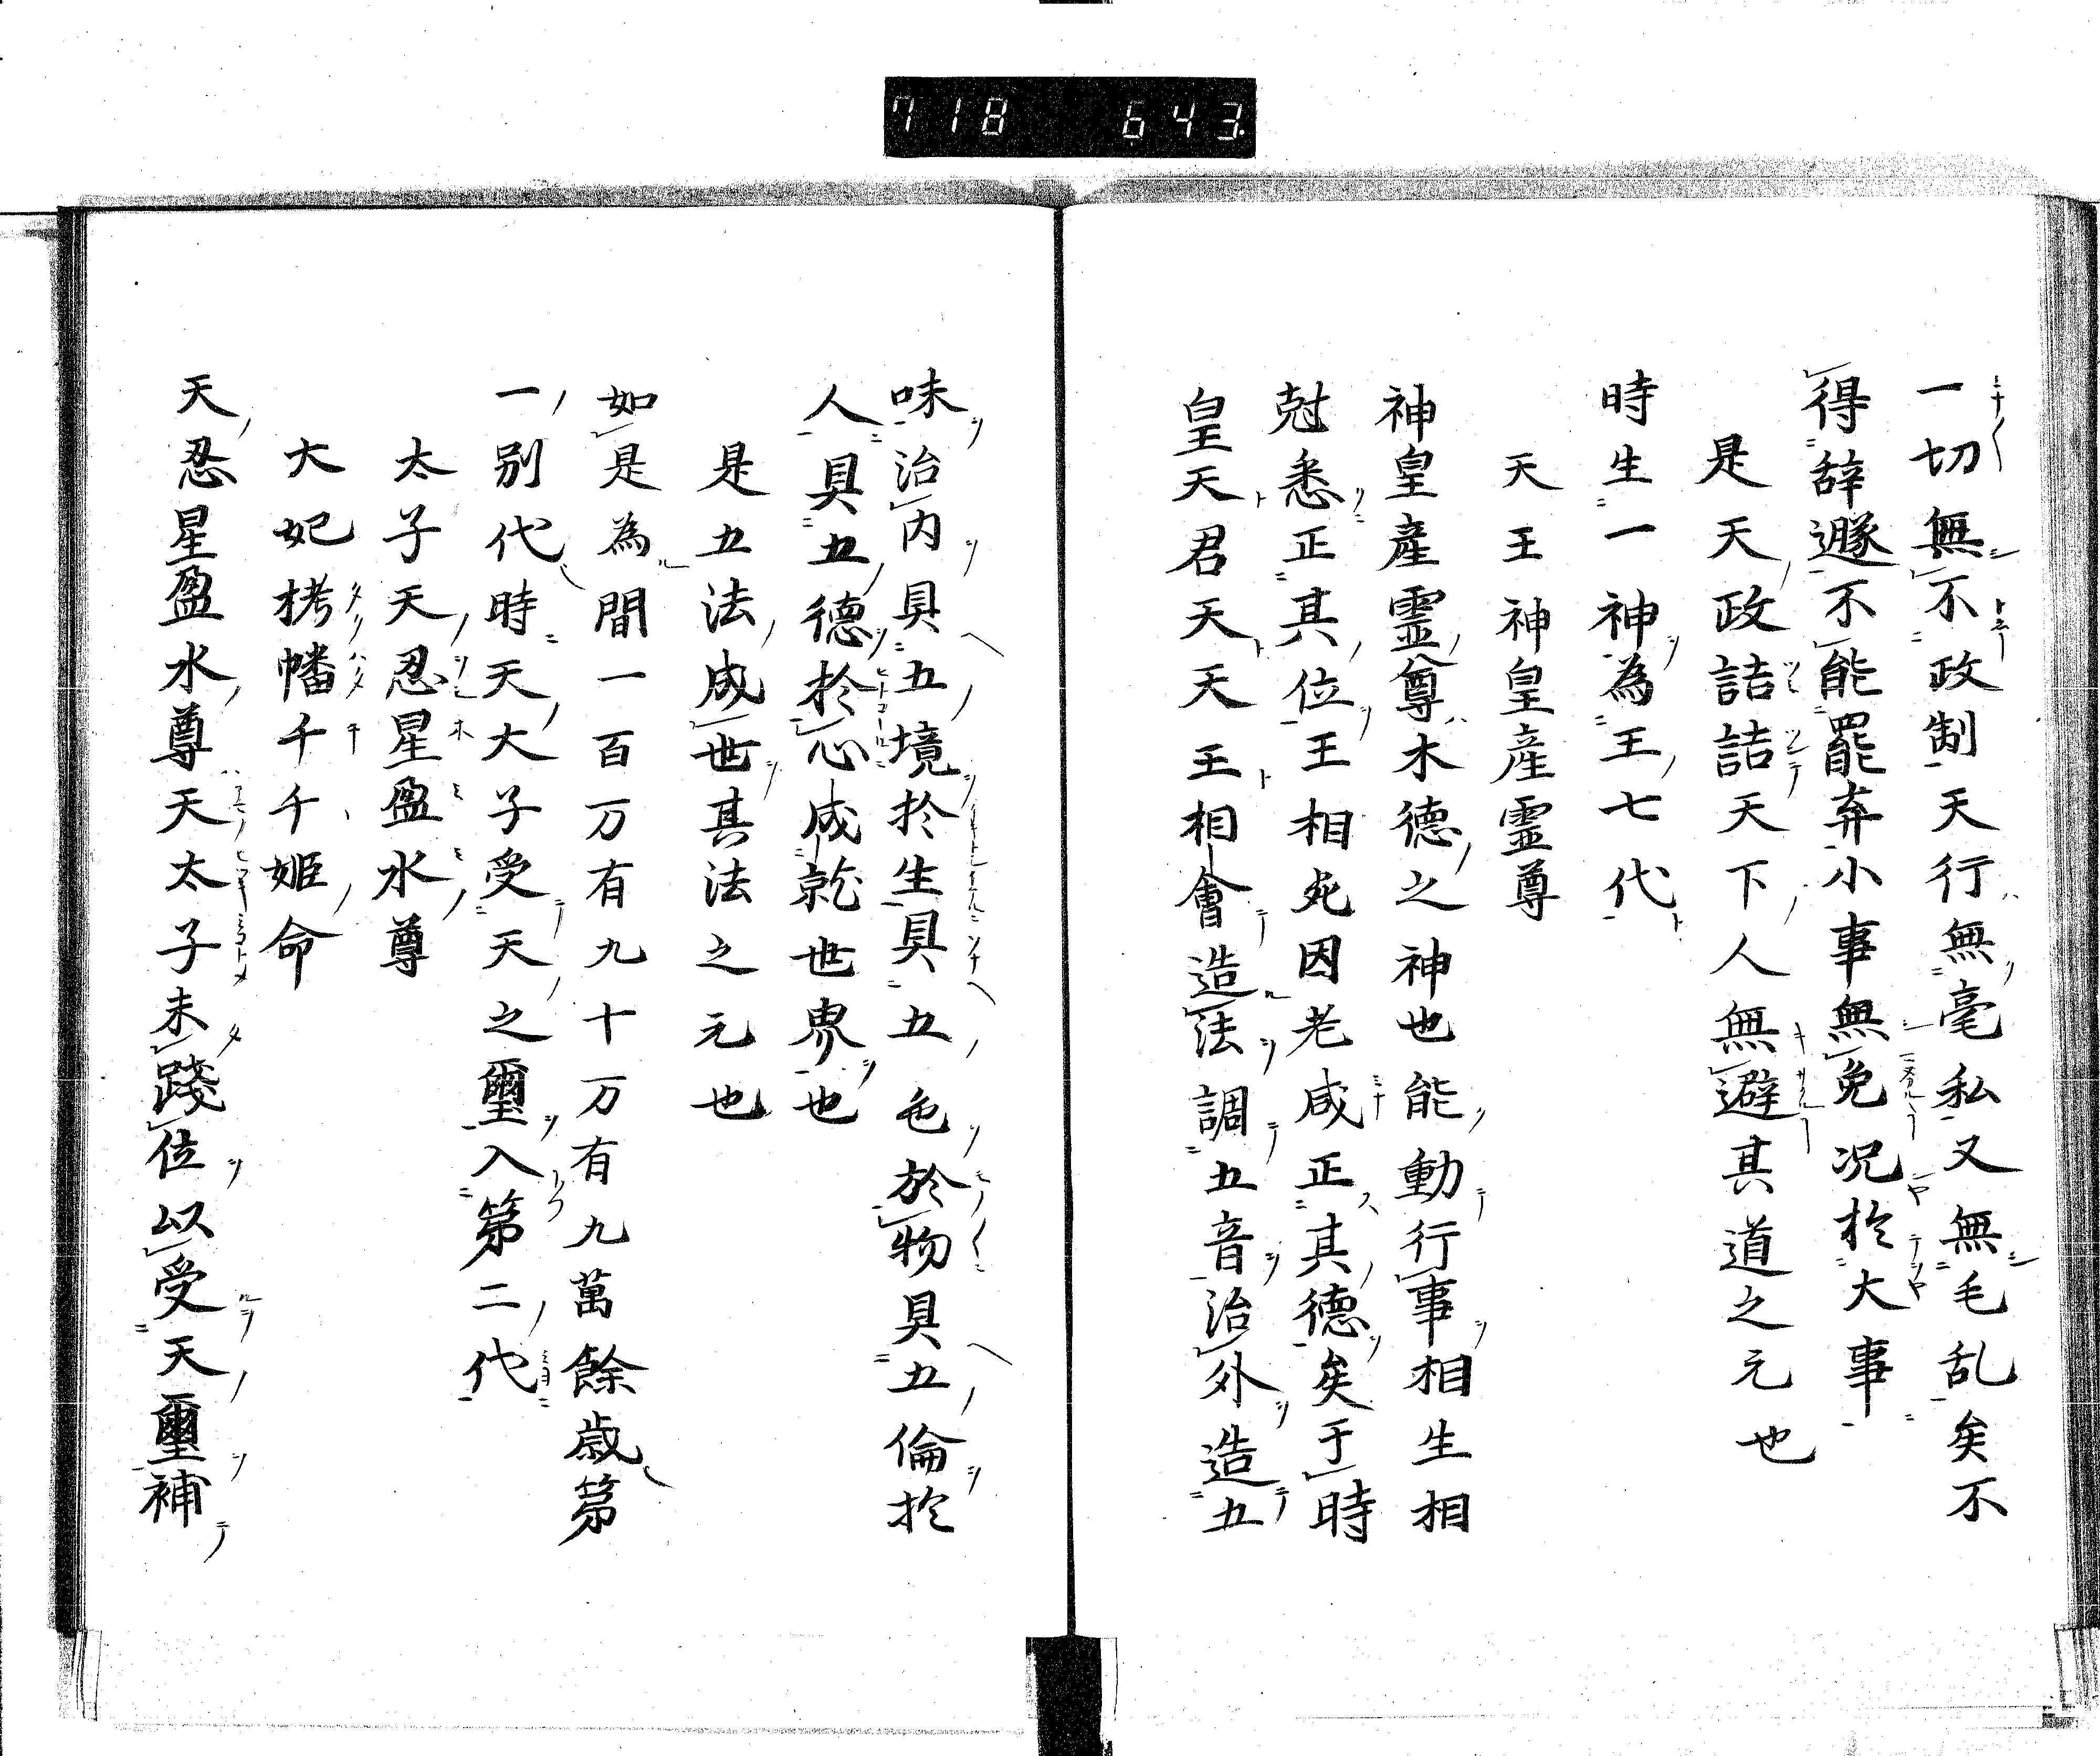 718 643
一切無不政制天行無毫私又無毛乱矣不
得辞遯不能罷弃小事無免况於大事
是天政詰詰天下人無避其道之元也
時生一神為王七代
天王神皇産霊尊
神皇産霊尊木徳之神也能動行事相生相
尅悉正其位王相死因老咸正其徳矣于時
皇天君天天王相會造法調五音治外造五
味治内具五境於生具五色於物具五倫於
人具五徳於心成乾世界也
是五法成世其法之元也
如是為間一百万有九十万有九萬餘歳第
一別代時天大子受天之璽入第二代
太子天忍星盈水尊
大妃栲幡千千姫命
天忍星盈水尊天太子未踐位以受天璽補